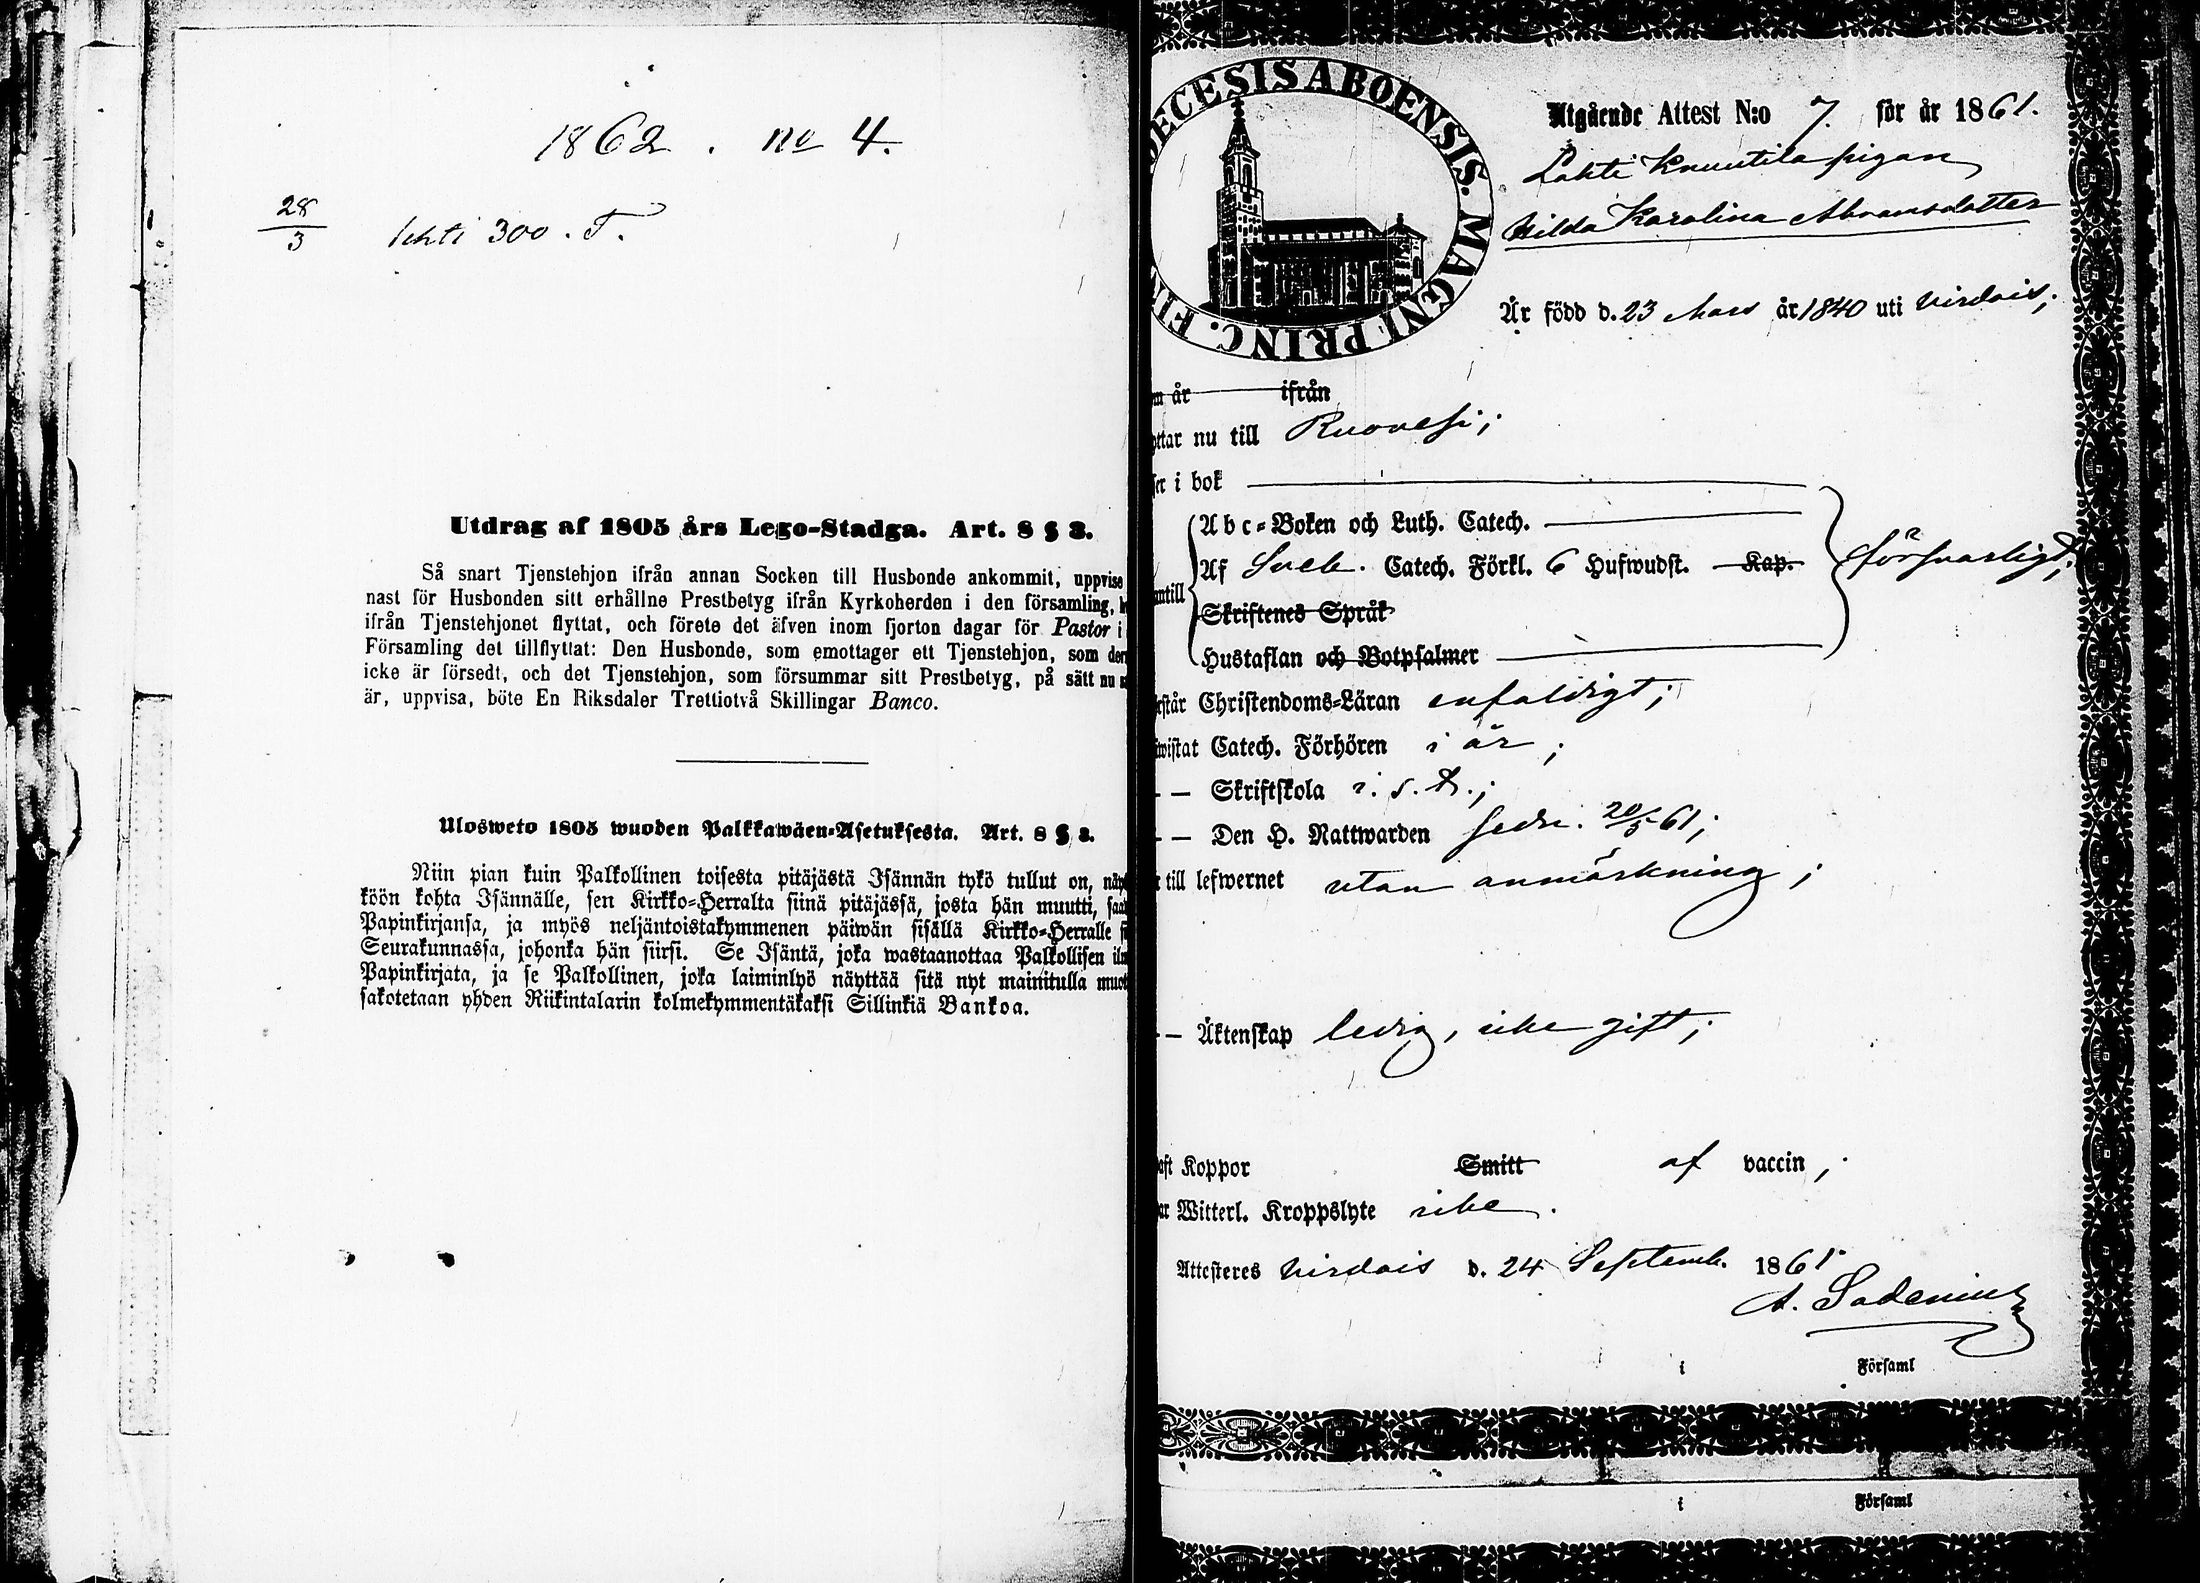 1862. no 4.
28/3 lehti 300. T.
Utdrag af 1805 års Lego-Stadga. Art. 8 § 3.
Så snart Tjenstehjon ifrån annan Socken till Husbonde ankommit, uppvise
nast för Husbonden sitt erhållne Prestbetyg ifrån Kyrkoherden i den församling,
ifrån Tjenstehjonet flyttat, och förete det äfven inom fjorton dagar för Pastor i
Församling det tillflyttat: Den Husbonde, som emottager ett Tjenstehjon, som der
icke är försedt, och det Tjenstehjon, som försummar sitt Prestbetyg, på sätt nu
är, uppvisa, böte En Riksdaler Trettiotvå Skillingar Banco.
Ulosweto 1805 wuoden Palkkawäen-Asetuksesta. Art. 8 § 3.
Niin pian kuin Palkollinen toisesta pitäjästä Isännän tykö tullut on, näyt
köön kohta Isännälle, sen Kirkko-Herralta siinä pitäjässä, josta hän muutti, saa
Papinkirjansa, ja myös neljäntoistakymmenen päiwän sisällä Kirkko-Herralle
Seurakunnassa, johonka hän siirsi. Se Isäntä, joka wastaanottaa Palkollisen il
Papinkirjata, ja se Palkollinen, joka laiminlyö näyttää sitä nyt mainitulla muot
sakotetaan yhden Riikintalarin kolmekymmentäkaksi Sillinkiä Bankoa.
ECESIS ABOENSIS. MAGNI PRINC. FI
Utgående Attest N:o 7. för år 1861.
Lahti Knuutila pigan
Hilda Karolina Abramsdotter
Är född d. 23 Mars år 1840 uti Virdois;
m år ifrån
ttar nu till Ruovesi;
ser i bok
ntill
A b c-Boken och Luth. Catech.
Af Sveb. Catech. Förkl. 6 Hufwudst. Kap. försvarligt;
Skriftenes Språk
Hustaflan och Botpsalmer
står Christendoms-Läran enfaldigt;
wistat Catech. Förhören i år;
— Skriftskola i. s. t.;
— — Den H. Nattwarden sedn. 20/5 61;
r till lefwernet utan anmärkning;
— — Äktenskap ledig, icke gift;
aft Koppor Smitt af vaccin;
ar Witterl. Kroppslyte icke.
Attesteres Virdois d. 24 Septemb. 1861.
A. Sadenius
i Församl
i Församl